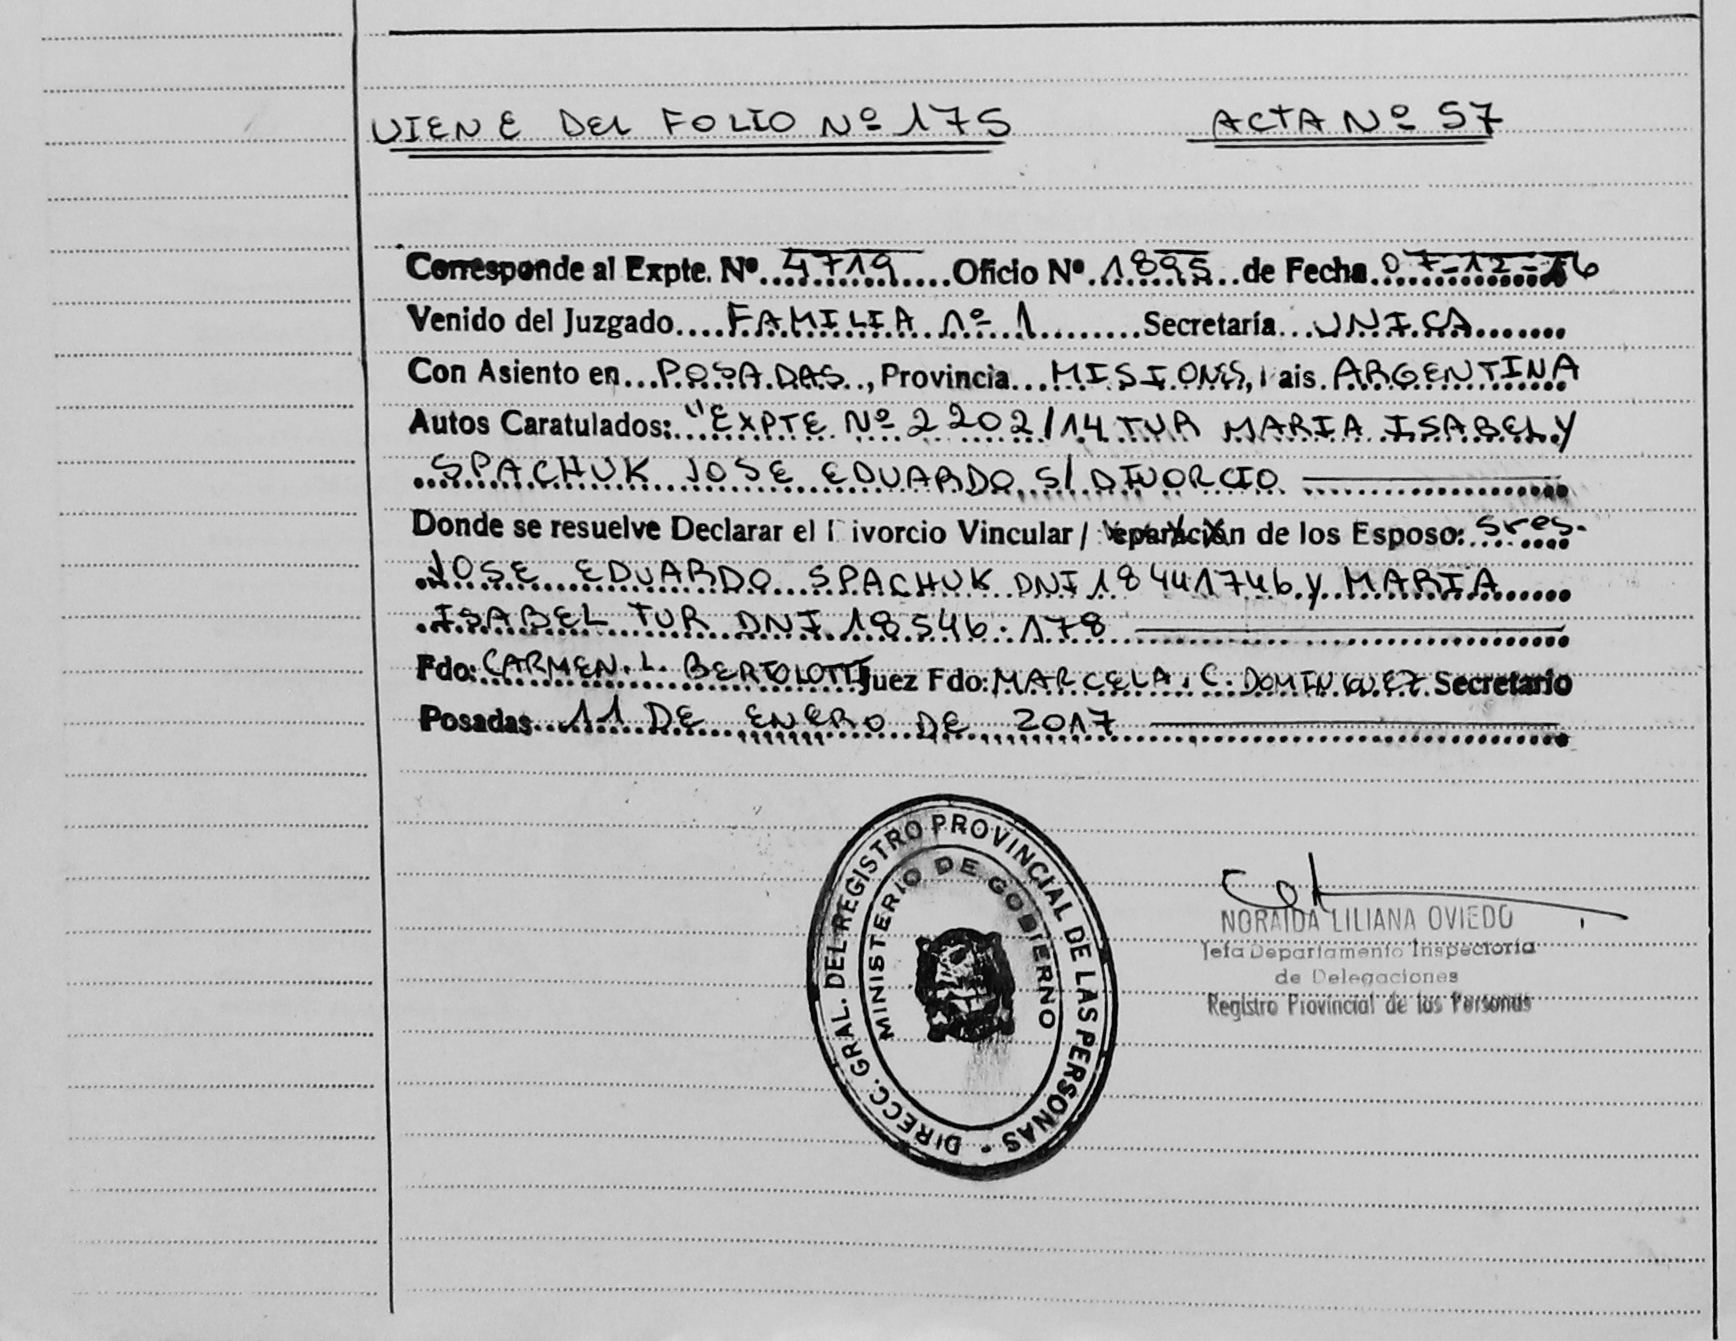 VIENE DEL FOLIO Nº 175 ACTA Nº 57
Corresponde al Expte. Nº 4719 Oficio Nº 1895 de Fecha 07-12-16
Venido del Juzgado FAMILIA Nº 1 Secretaría UNICA
Con Asiento en POSADAS, Provincia MISIONES, Pais ARGENTINA
Autos Caratulados: "EXPTE Nº 2202/14 TUR MARIA ISABEL Y
SPACHUK JOSE EDUARDO S/ DIVORCIO
Donde se resuelve Declarar el Divorcio Vincular / Separación de los Esposo: Sres.
JOSE EDUARDO SPACHUK DNI 18441746 y MARIA
ISABEL TUR DNI 18.546.178
Fdo: CARMEN. L. BERTOLOTTI Juez Fdo: MARCELA. C. DOMINGUEZ Secretario
Posadas 11 DE ENERO DE 2017
DIRECC. GRAL. DEL REGISTRO PROVINCIAL DE LAS PERSONAS -
MINISTERIO DE GOBIERNO
NORAIDA LILIANA OVIEDO
Jefa Departamento Inspectoria
de Delegaciones
Registro Provincial de las Personas